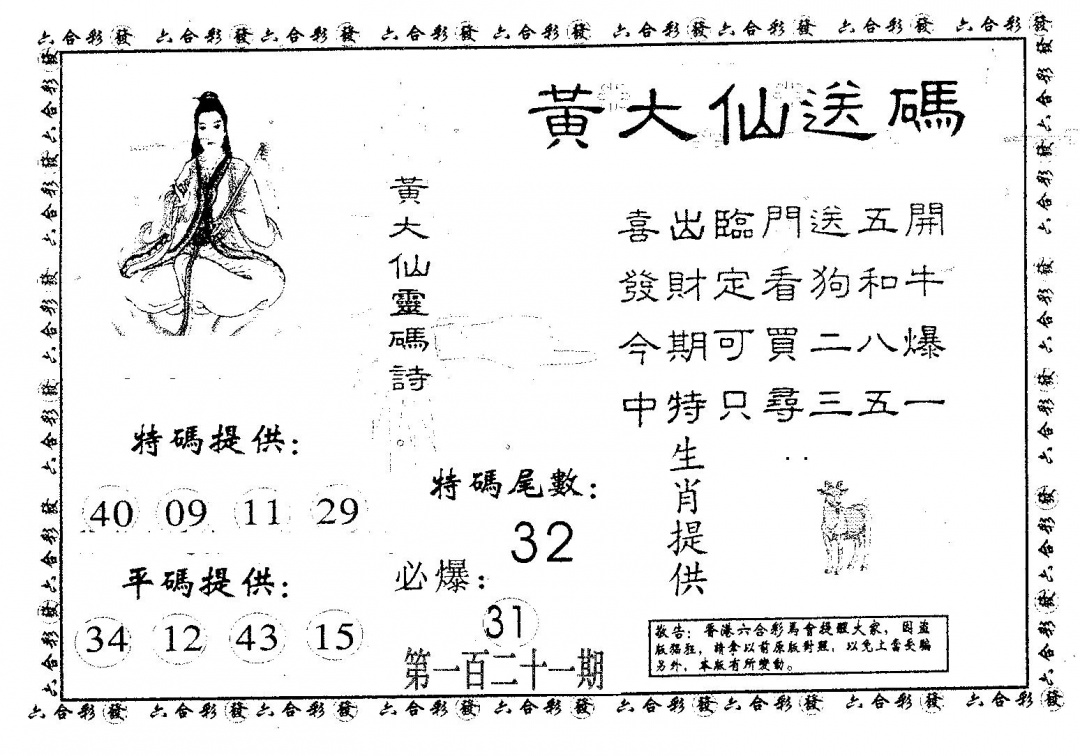 六合彩發 六合彩發六合彩發 六合彩發六合彩發 六合彩發六合彩發 六合彩發 六合彩發
黃大仙送碼
黃大仙靈碼詩
喜出臨門送五開
發財定看狗和牛
今期可買二八爆
中特只尋三五一
特碼提供：
40 09 11 29
平碼提供：
34 12 43 15
特碼尾數：
32
必爆：
31
第一百二十一期
生肖提供
敬告：香港六合彩馬會提醒大家，因盜
版猖狂，請拿以前原版對照，以免上當受騙
另外，本版有所變動。
六合彩發 六合彩發六合彩發 六合彩發六合彩發 六合彩發六合彩發 六合彩發 六合彩發